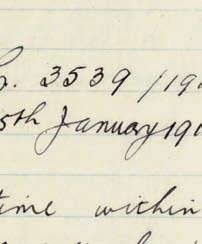 . 3539 /19
5th January 191
time within